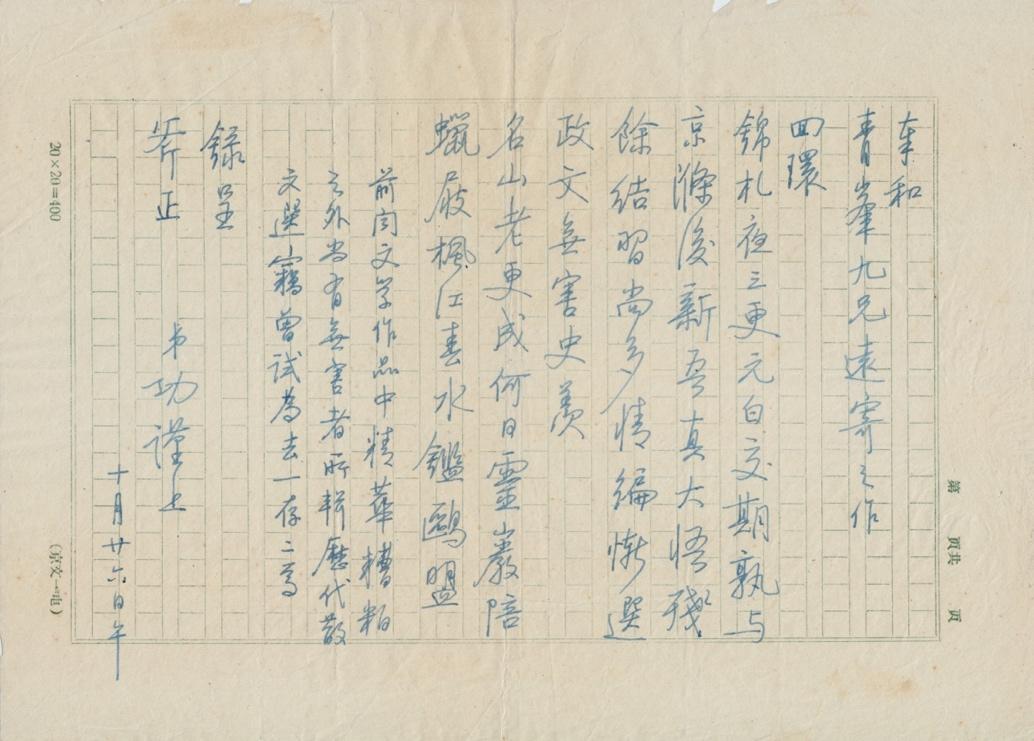 奉和
青峯九兄遠寄之作
回環
錦札夜三更元白交期孰与
京滌後新吾真大悟殘
餘結習尚多情編慚選
政文無害史羨
名山老更成何日靈巖陪
蠟屐楓江春水鑑鷗盟
前聞文学作品中精華糟粕
之外尚有無害者所輯歷代散
文選竊曾試為去一存二焉
錄呈
斧正
弟功謹上
十月廿六日午
第 頁共 頁
20×20=400
(京文·电)